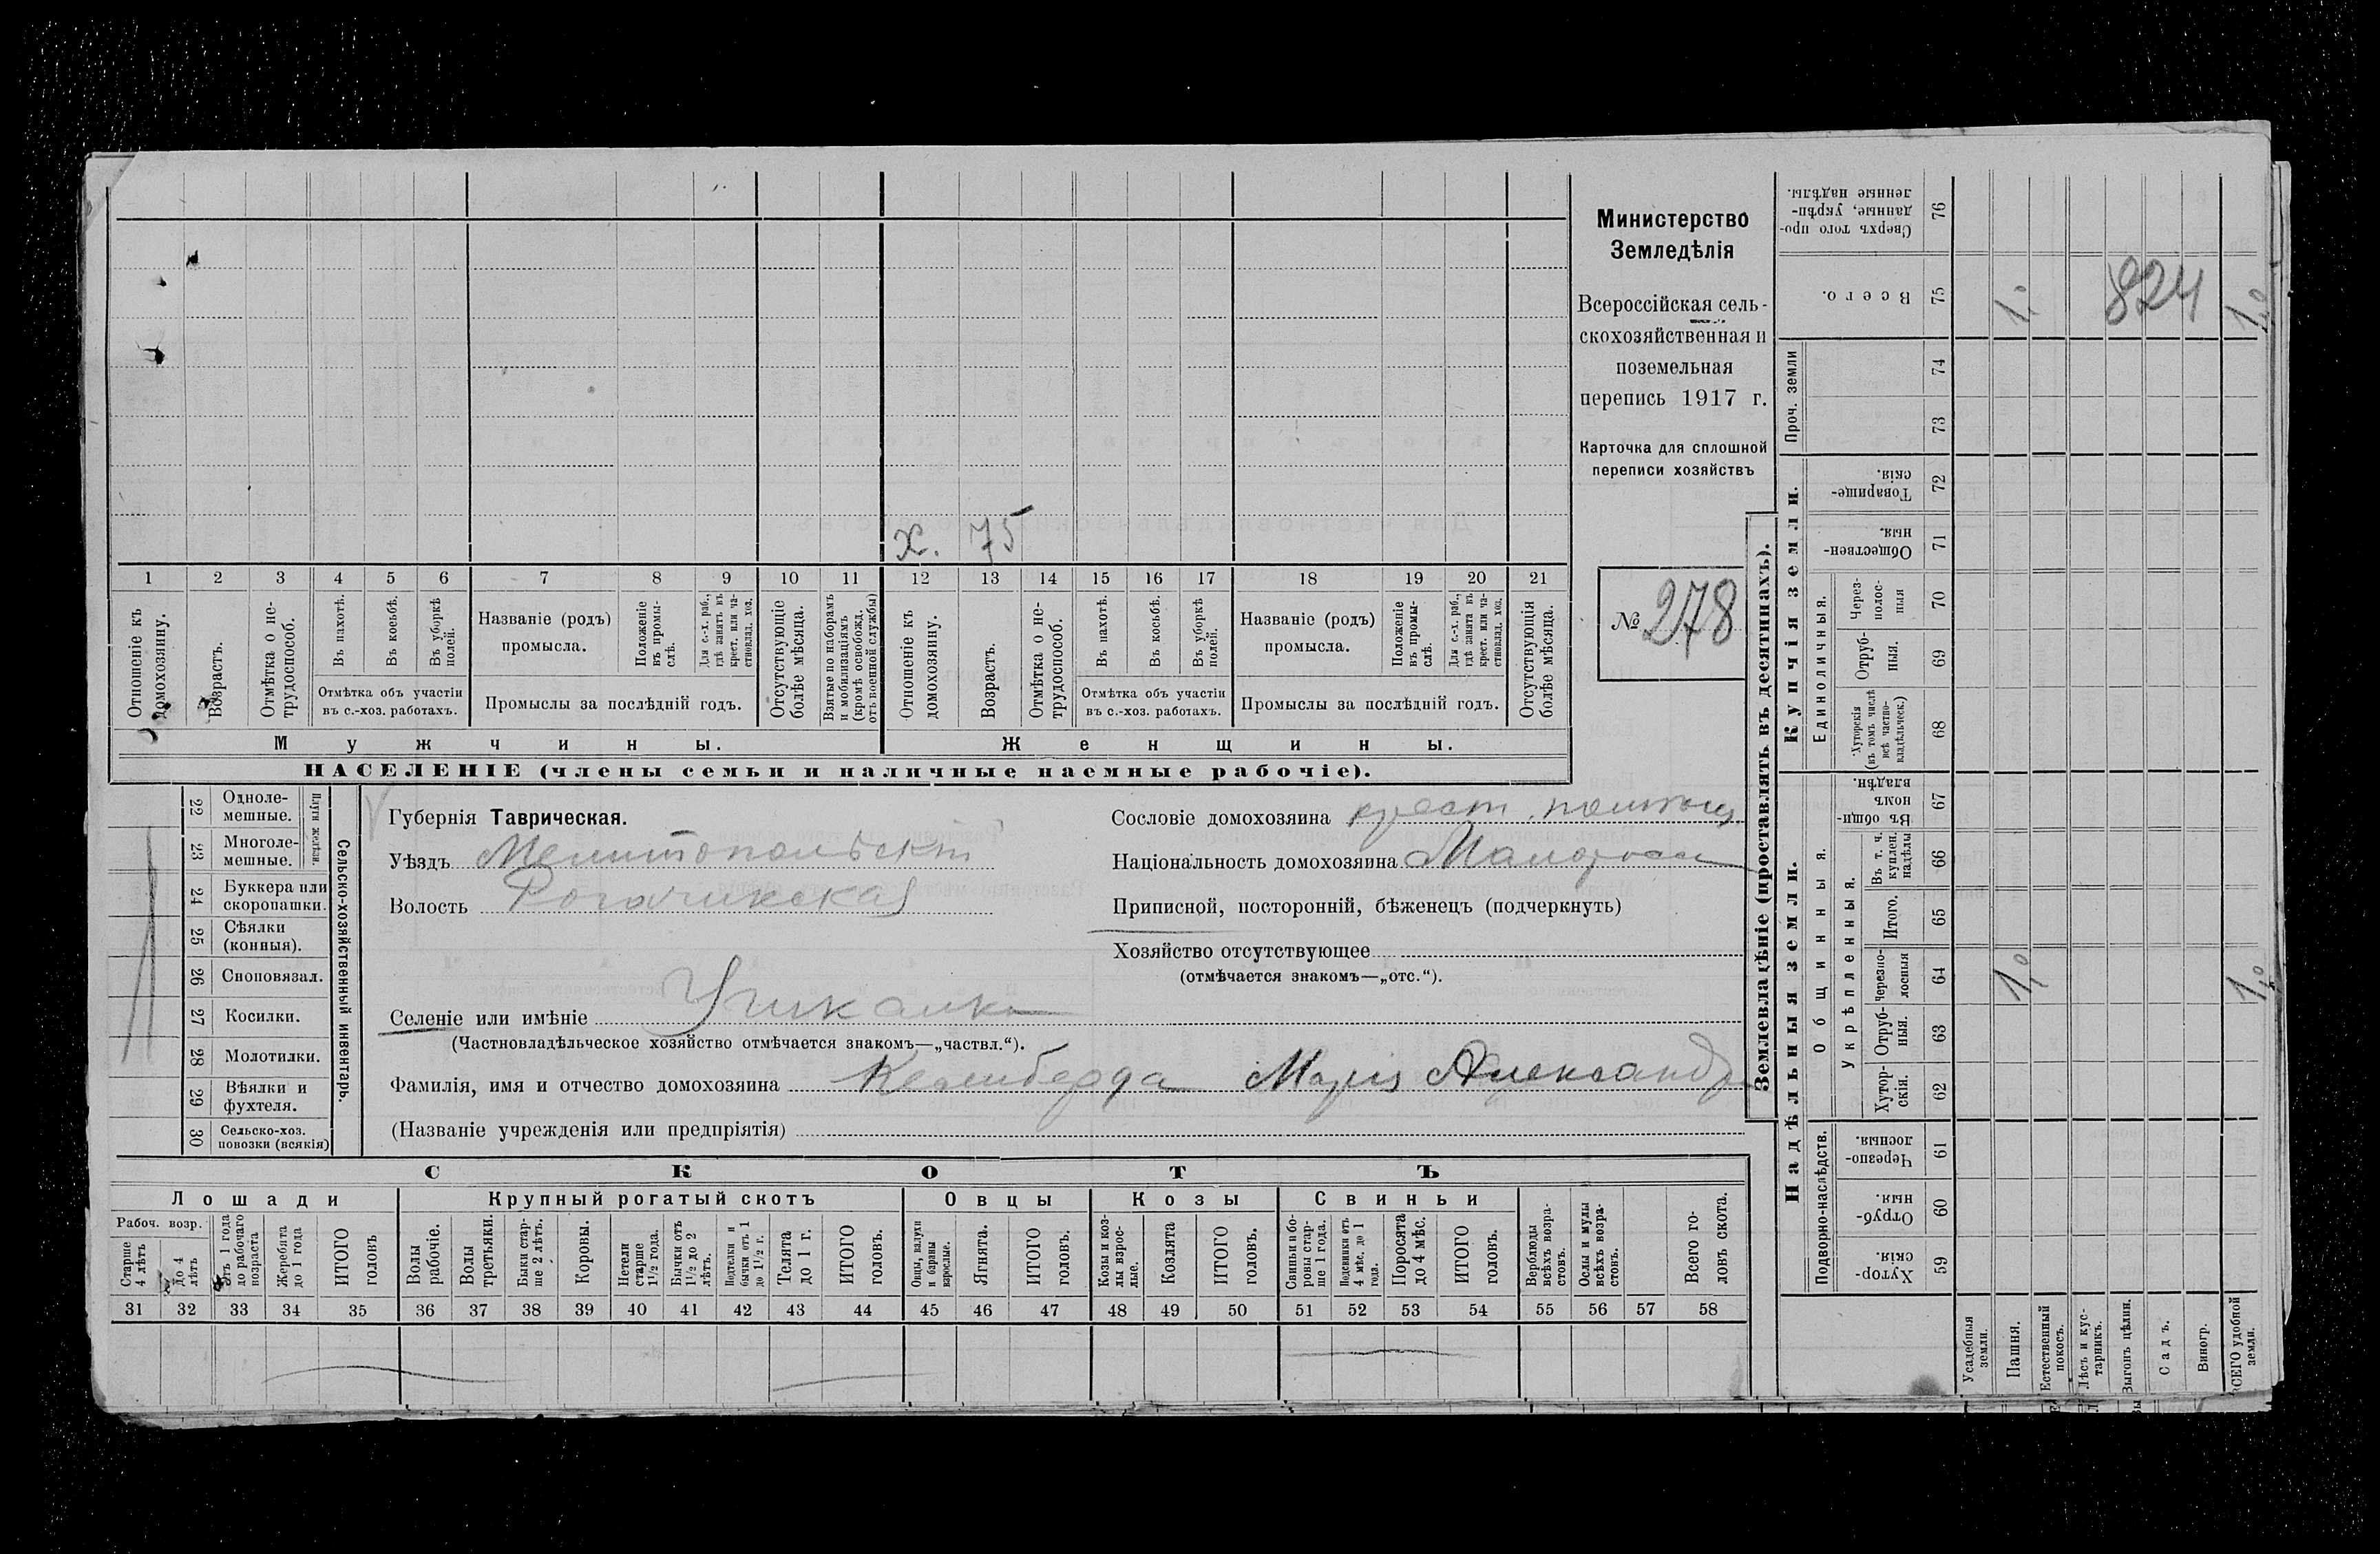 х. 75
1 2 3 4 5 6 7 8 9 10 11 12 13 14 15 16 17 18 19 20 21
Отношеніе къ домохозяину.
Возрастъ.
Отмѣтка о не-трудоспособ.
Въ пахотѣ.
Въ косьбѣ.
Въ уборкѣ полей.
Отмѣтка объ участіи
въ с.-хоз. работахъ.
Названіе (родъ)
промысла.
Положеніе въ промы-слѣ.
Для с.-х. раб., гдѣ занятъ въ крест. или ча-стновлад. хоз.
Промыслы за послѣдній годъ.
Отсутствующіе болѣе мѣсяца.
Взятые по наборамъ и мобилизаціямъ (кромѣ освобожд. отъ военной службы)
Отношеніе къ домохозяину.
Возрастъ.
Отмѣтка о не-трудоспособ.
Въ пахотѣ.
Въ косьбѣ.
Въ уборкѣ полей.
Отмѣтка объ участіи
въ с.-хоз. работахъ.
Названіе (родъ)
промысла.
Положеніе въ промы-слѣ.
Для с.-х. раб., гдѣ занята въ крест. или ча-стновлад. хоз.
Промыслы за послѣдній годъ.
Отсутствующія болѣе мѣсяца.
Мужчины.
Женщины.
НАСЕЛЕНІЕ (члены семьи и наличные наемные рабочіе).
Министерство
Земледѣлія
Всероссійская сель-
скохозяйственная и
поземельная
перепись 1917 г.
Карточка для сплошной
переписи хозяйствъ
№ 278
22 Одноле-
мешные.
23 Многоле-
мешные.
Плуги желѣзн.
24 Буккера или
скоропашки.
25 Сѣялки
(конныя).
26 Сноповязал.
27 Косилки.
28 Молотилки.
29 Вѣялки и
фухтеля.
30 Сельско-хоз.
повозки (всякія)
Сельско-хозяйственный инвентарь.
Губернія Таврическая.
Уѣздъ Мелитопольскій
Волость Рогачикская
Селеніе или имѣніе Ушкалка
(Частновладѣльческое хозяйство отмѣчается знакомъ—„частвл.“).
Фамилія, имя и отчество домохозяина Келеберда Марія Александр
(Названіе учрежденія или предпріятія)
Сословіе домохозяина крест.
Національность домохозяина Малоросс
Приписной, посторонній, бѣженецъ (подчеркнуть)
Хозяйство отсутствующее
(отмѣчается знакомъ—„отс.“).
СКОТЪ
Лошади
Рабоч. возр.
Старше 4 лѣтъ
до 4 лѣтъ
Отъ 1 года до рабочаго возраста
Жеребята до 1 года
ИТОГО головъ
Крупный рогатый скотъ
Волы рабочіе.
Волы третьяки.
Быки стар-ше 2 лѣтъ.
Коровы.
Нетели старше 1½ года.
Бычки отъ 1½ до 2 лѣтъ.
Подтелки и бычки отъ 1 до 1½ г.
Телята до 1 г.
ИТОГО головъ.
Овцы
Овцы, валухи и бараны взрослые.
Ягнята.
ИТОГО головъ.
Козы
Козы и коз-лы взрос-лые.
Козлята
ИТОГО головъ.
Свиньи
Свиньи и бо-ровы стар-ше 1 года.
Подсвинки отъ 4 мѣс. до 1 года.
Поросята до 4 мѣс.
ИТОГО головъ.
Верблюды всѣхъ возра-стовъ.
Ослы и мулы всѣхъ возра-стовъ.
Всего го-ловъ скота.
31 32 33 34 35 36 37 38 39 40 41 42 43 44 45 46 47 48 49 50 51 52 53 54 55 56 57 58
Землевладѣніе (проставлять въ десятинахъ).
Надѣльныя земли.
Купчія земли.
Проч. земли
Подворно-наслѣдств.
Общинныя.
Укрѣпленныя.
Единоличныя.
Сверхъ того про-данные, укрѣп-ленные надѣлы. 76
Всего. 75 1,0 824 1,0
74
73
Товарище-скія. 72
Обществен-ныя. 71
Через-полос-ныя 70
Отруб-ныя. 69
Хуторскія (въ томъ числѣ всѣ частно-владѣльческ.) 68
Въ общи-номъ владѣн. 67
Въ т. ч. куплен. надѣлы 66
Итого. 65
Черезпо-лосныя 64 1,0 1,0
Отруб-ныя. 63
Хутор-скія. 62
Черезпо-лосныя. 61
Отруб-ныя. 60
Хутор-скія. 59
Усадебныя земли.
Пашня.
Естественный покосъ.
Лѣсъ и кус-тарникъ.
Выгонъ цѣлин.
Садъ.
Виногр.
ВСЕГО удобной земли.